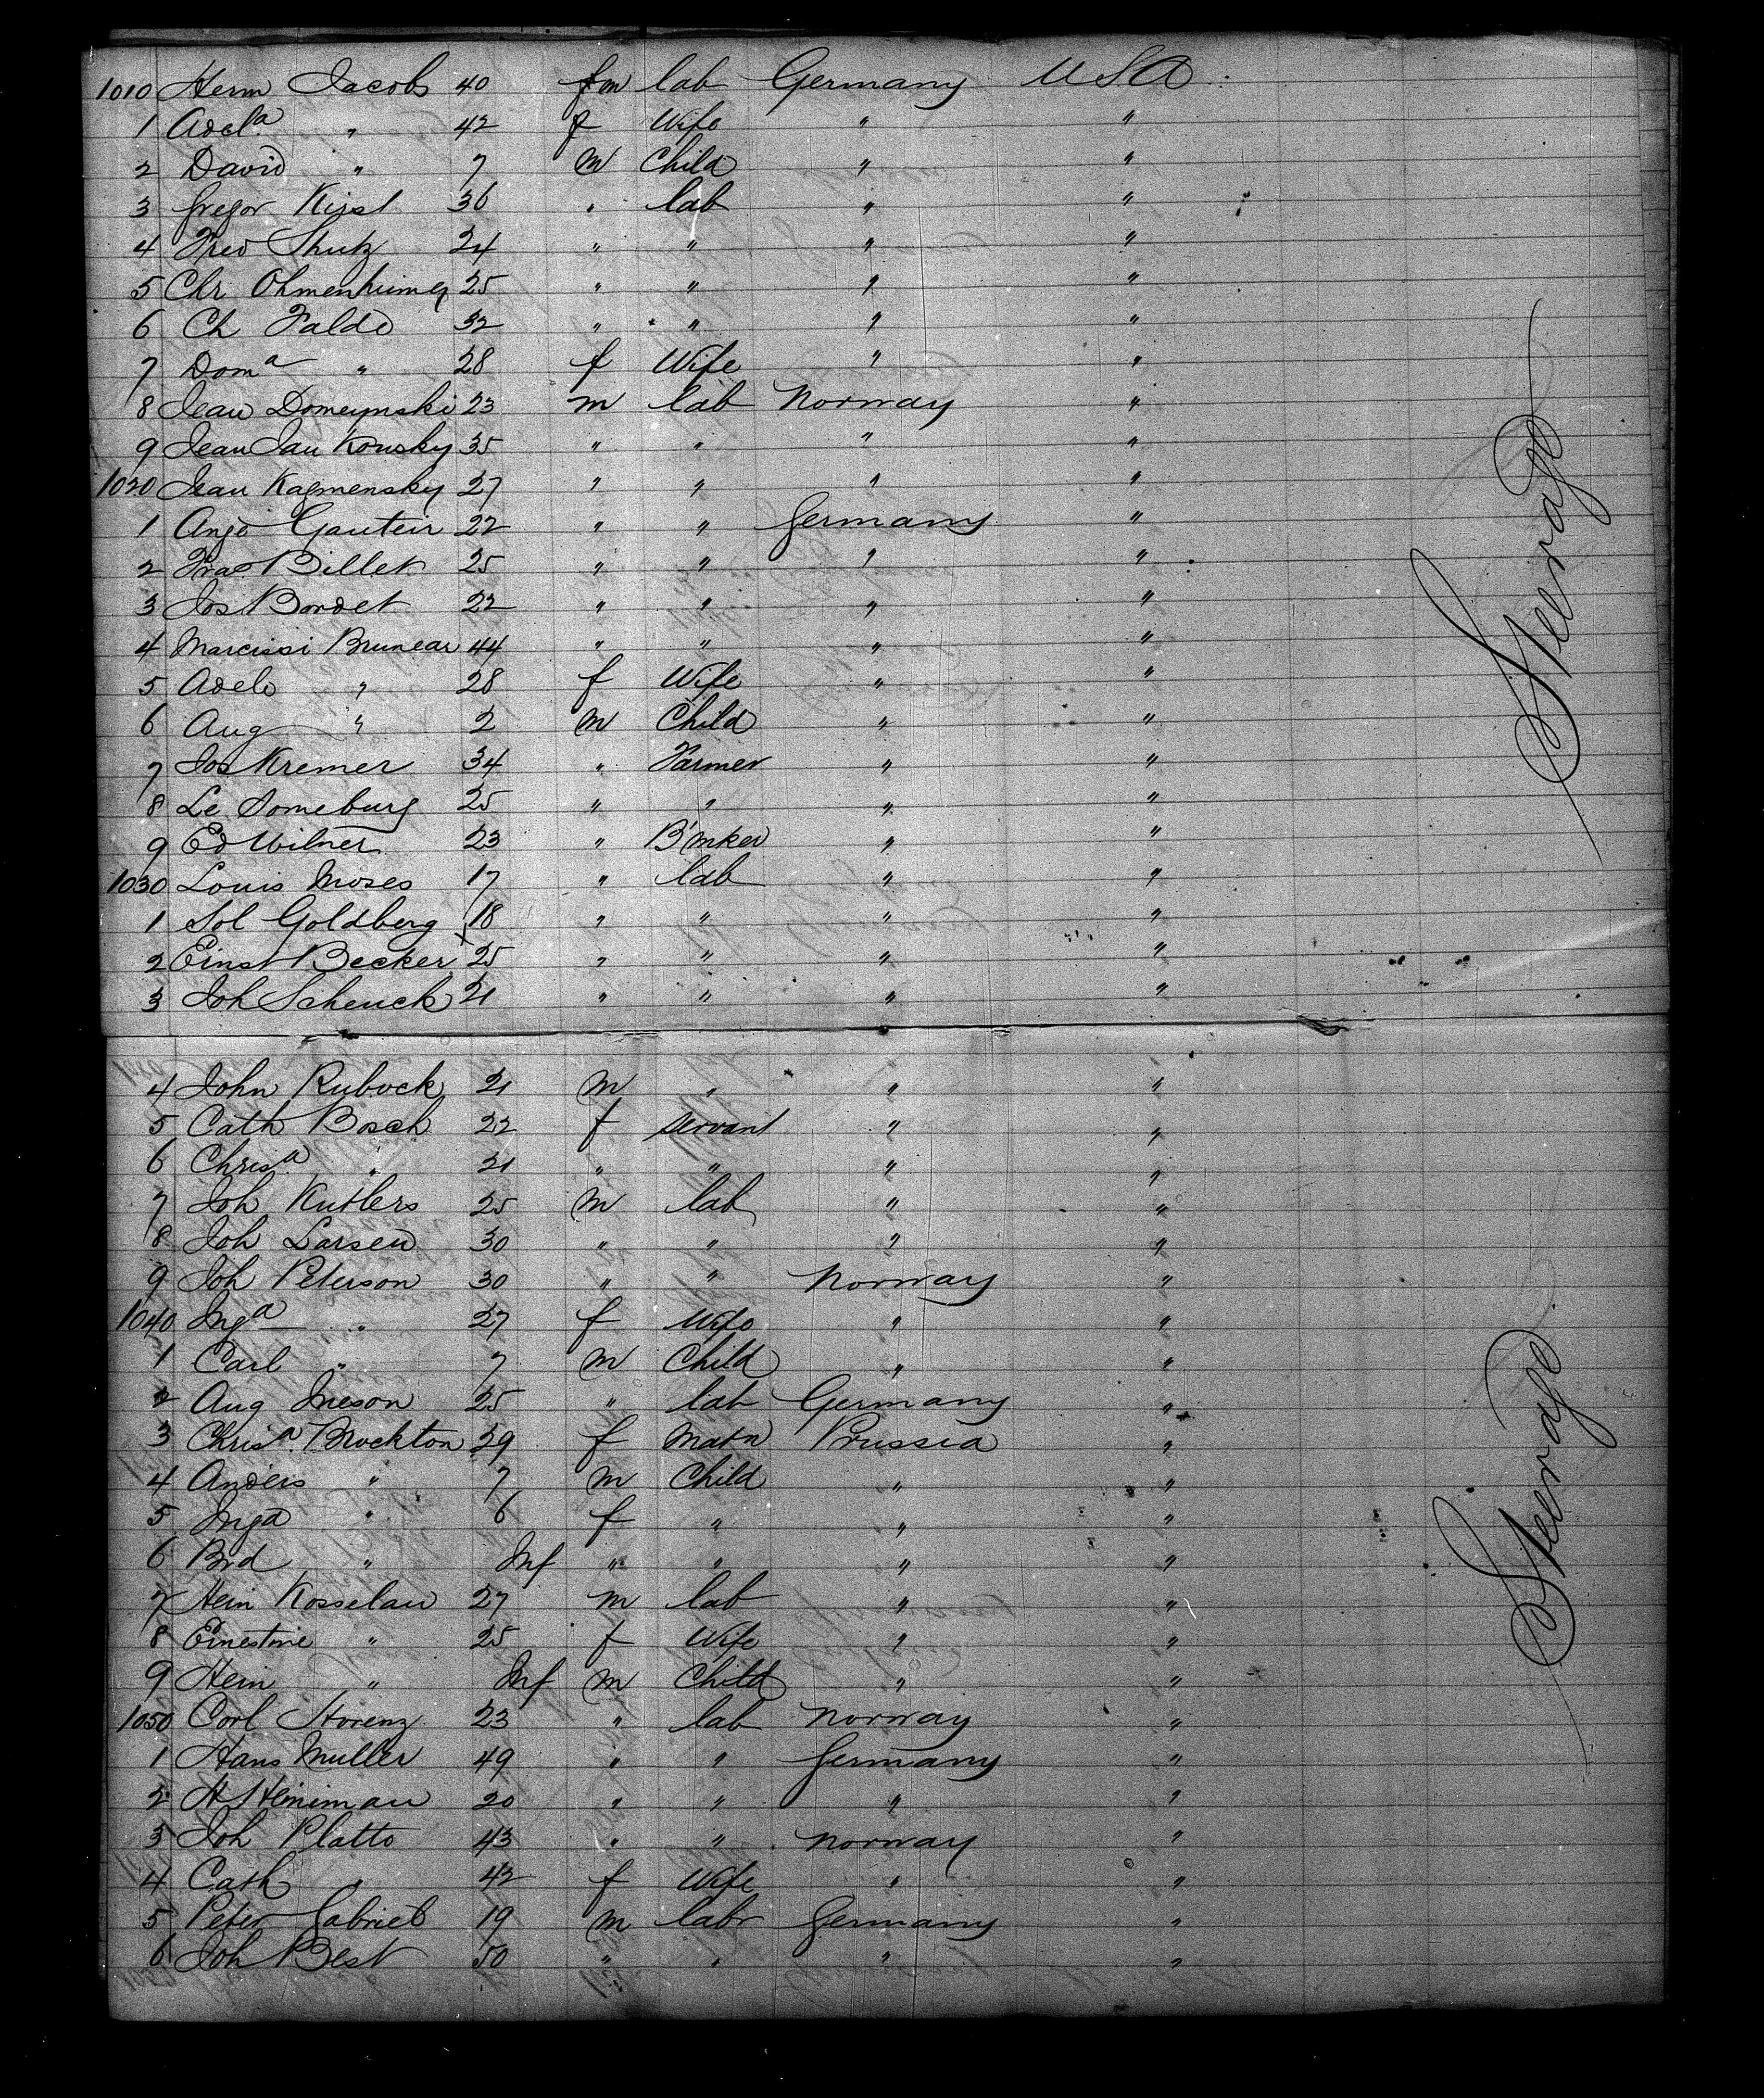 1010 Herm Jacobs 40 m lab Germany U S A
1 Adela " 42 f Wife " "
2 David " 7 m Child " "
3 Gregor Kirst 36 " lab " "
4 Fred Shutz 24 " " " "
5 Chr Ohmenheimer 25 " " " "
6 Ch Falde 32 " " " "
7 Doma " 28 f Wife " "
8 Jean Domeynski 23 m lab Norway "
9 Jean Jau Kousky 35 " " " "
1020 Jean Kagmensky 27 " " " "
1 Ange Gauteir 22 " " Germany "
2 Fras Billet 25 " " " "
3 Jos Bordet 22 " " " "
4 Marcissi Brunear 44 " " " "
5 Adele " 28 f Wife " "
6 Aug " 2 m Child " "
7 Jos Kremer 34 " Farmer " "
8 Le Someburg 25 " " " "
9 Ed Wilner 23 " B'mker " "
1030 Louis Moses 17 " lab " "
1 Sol Goldberg 18 " " " "
2 Ernst Becker 25 " " " "
3 Joh Schenck 21 " " " "
4 John Rubock 21 m " " "
5 Cath Bosch 22 f servant " "
6 Chrisa " 21 " " " "
7 Joh Kutlers 25 m lab " "
8 Joh Larsen 30 " " " "
9 Joh Peterson 30 " " Norway "
1040 Inga " 27 f Wife " "
1 Carl " 7 m Child " "
2 Aug Ineson 25 " lab Germany "
3 Chrisa Brockton 29 f Matn Prussia "
4 Anders " 7 m Child " "
5 Inga " 6 f " " "
6 Brd " Inf " " " "
7 Hein Kosselau 27 m lab " "
8 Ernestine " 25 f Wife " "
9 Hein " Inf m Child " "
1050 Carl Storenz 23 " lab Norway "
1 Hans Muller 49 " " Germany "
2 H Heiniman 20 " " " "
3 Joh Platto 43 " " Norway "
4 Cath " 42 f Wife " "
5 Peter Gabriel 19 m labr Germany "
6 Joh Best 50 " " " "
Steerage
Steerage